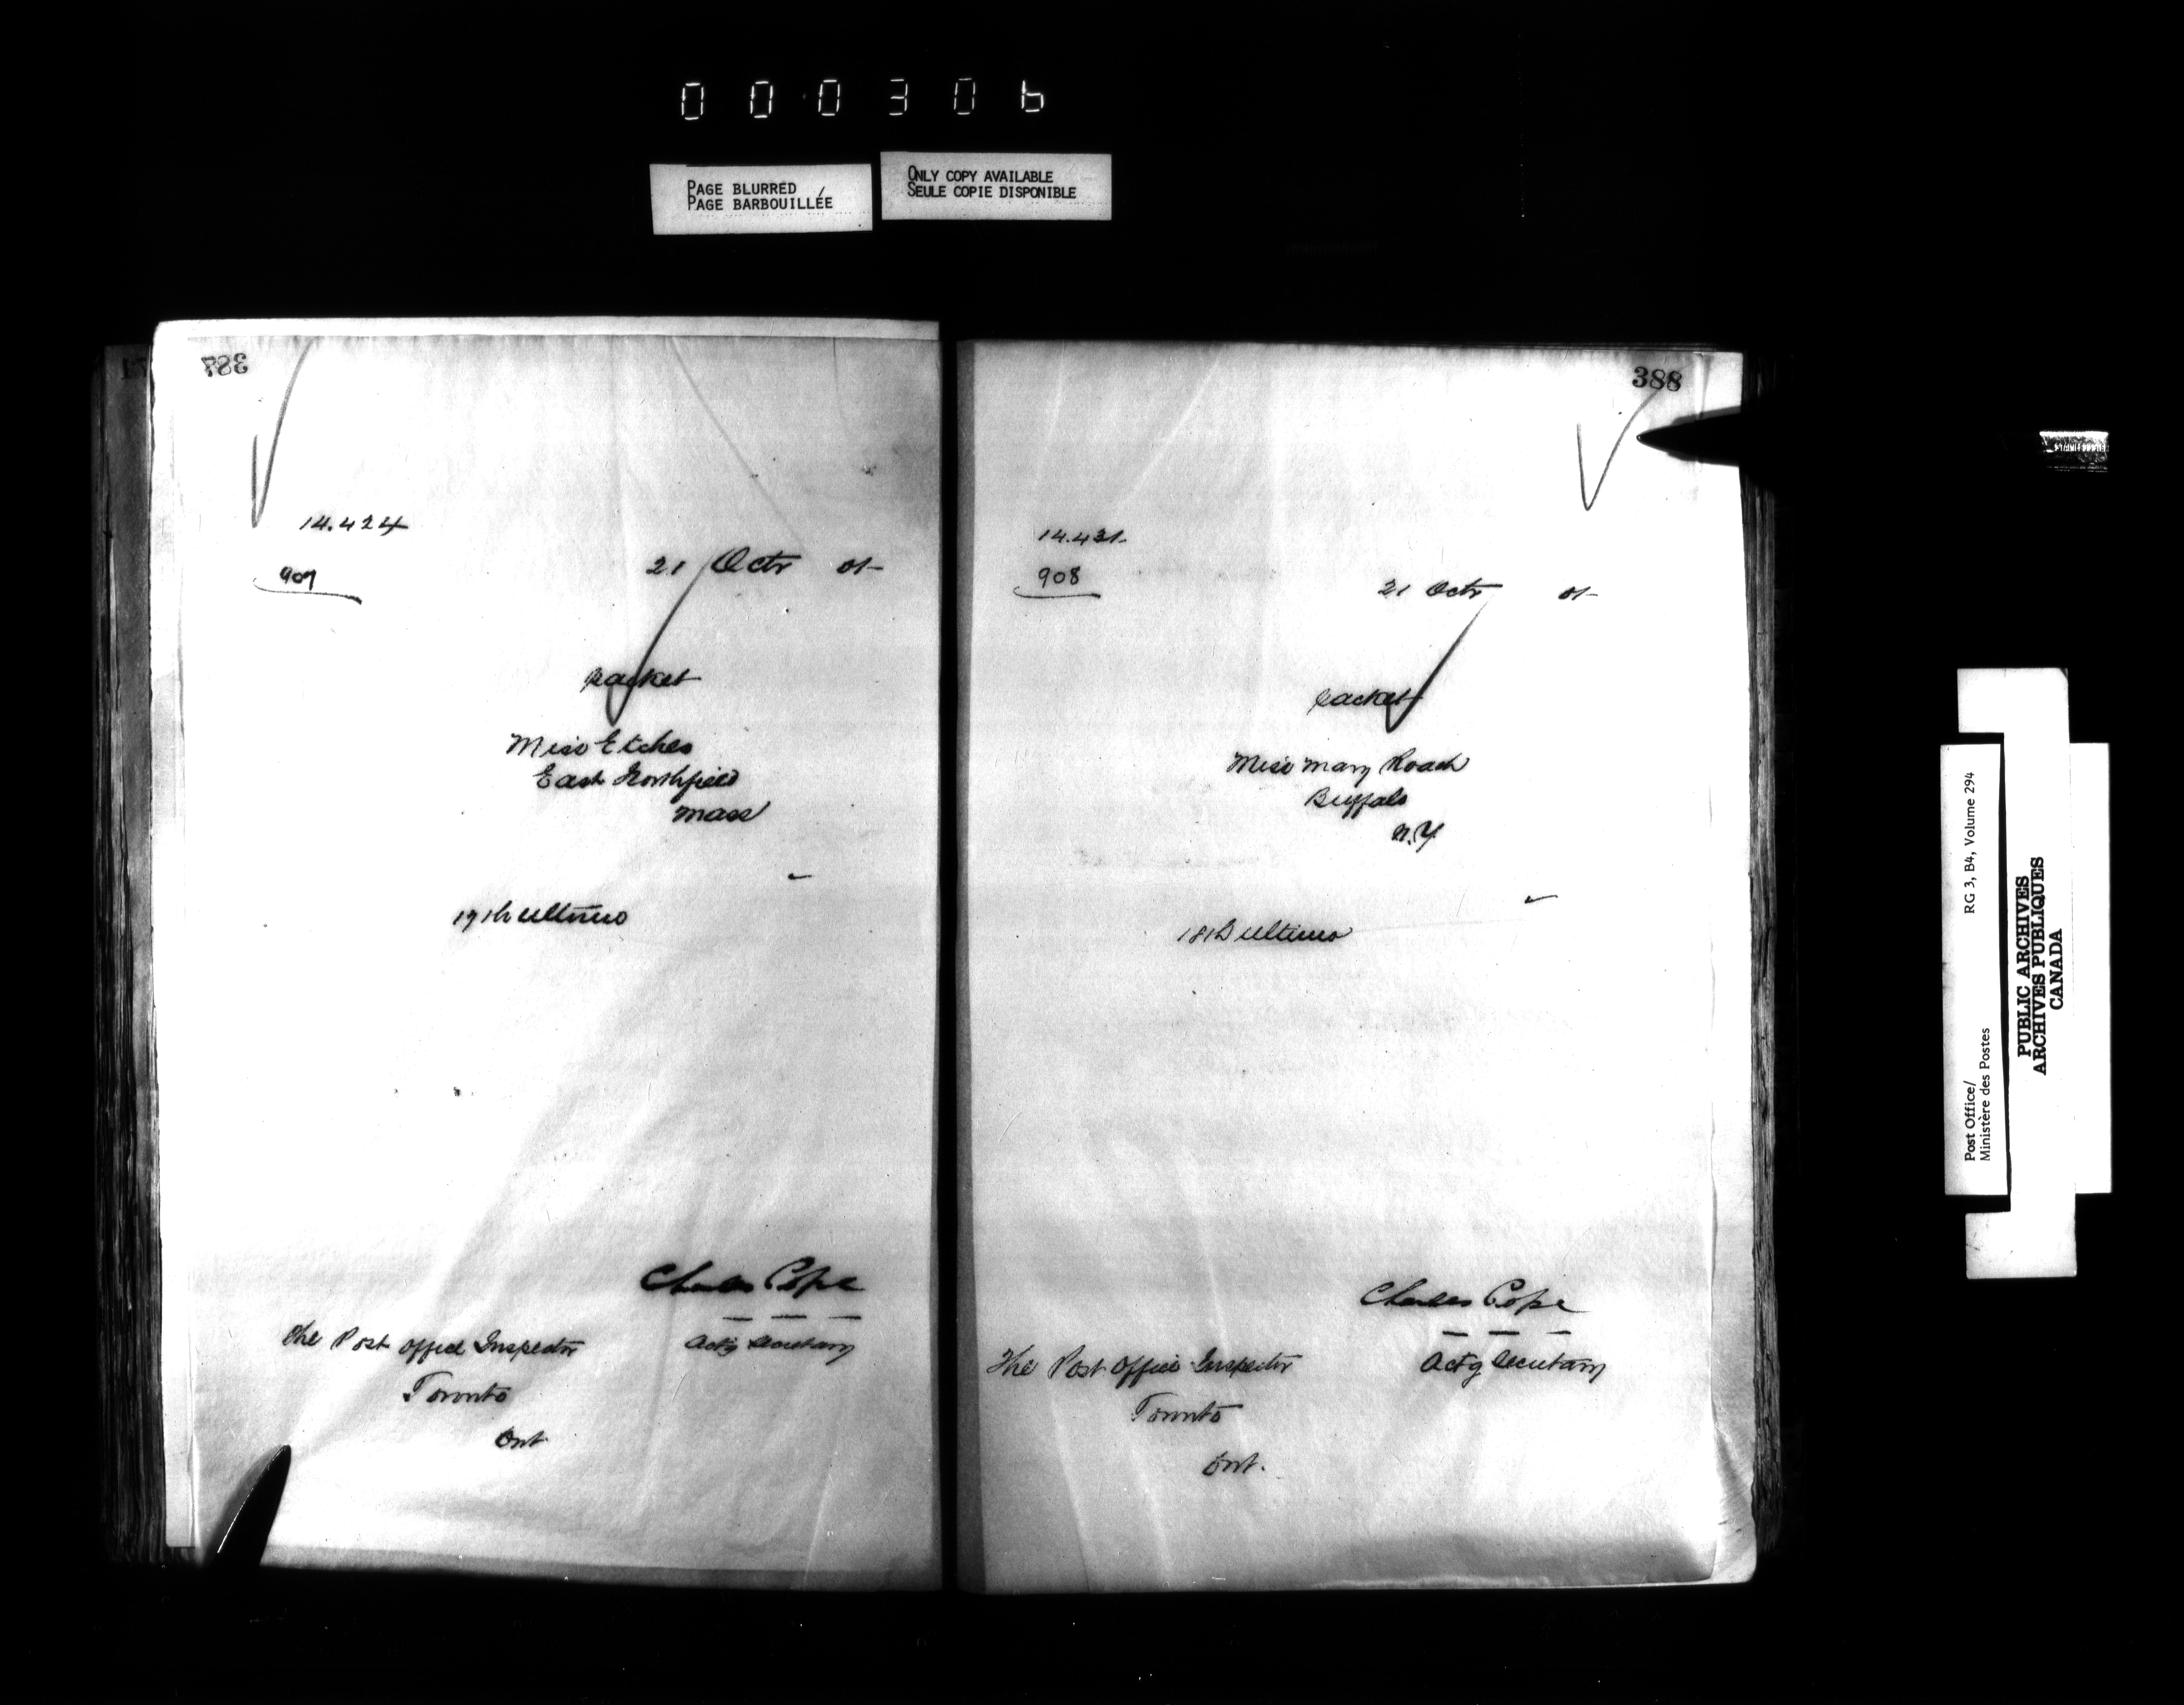 000306
PAGE BLURRED
PAGE BARBOUILLÉE
ONLY COPY AVAILABLE
SEULE COPIE DISPONIBLE
387
14.424
907
21 Octr 01-
Packet
Miss Etches
East Northfield
Mass
17th ultimo
Charles Pope
Actg Secretary
The Post Office Inspector
Toronto
Ont
388
14.431-
908
21 Octr 01-
Packet
Miss Mary Roach
Buffalo
N.Y
18th ultimo
Charles Pope
Actg Secretary
The Post Office Inspector
Toronto
Ont.
Post Office/
Ministère des Postes
RG 3, B4, Volume 294
PUBLIC ARCHIVES
ARCHIVES PUBLIQUES
CANADA